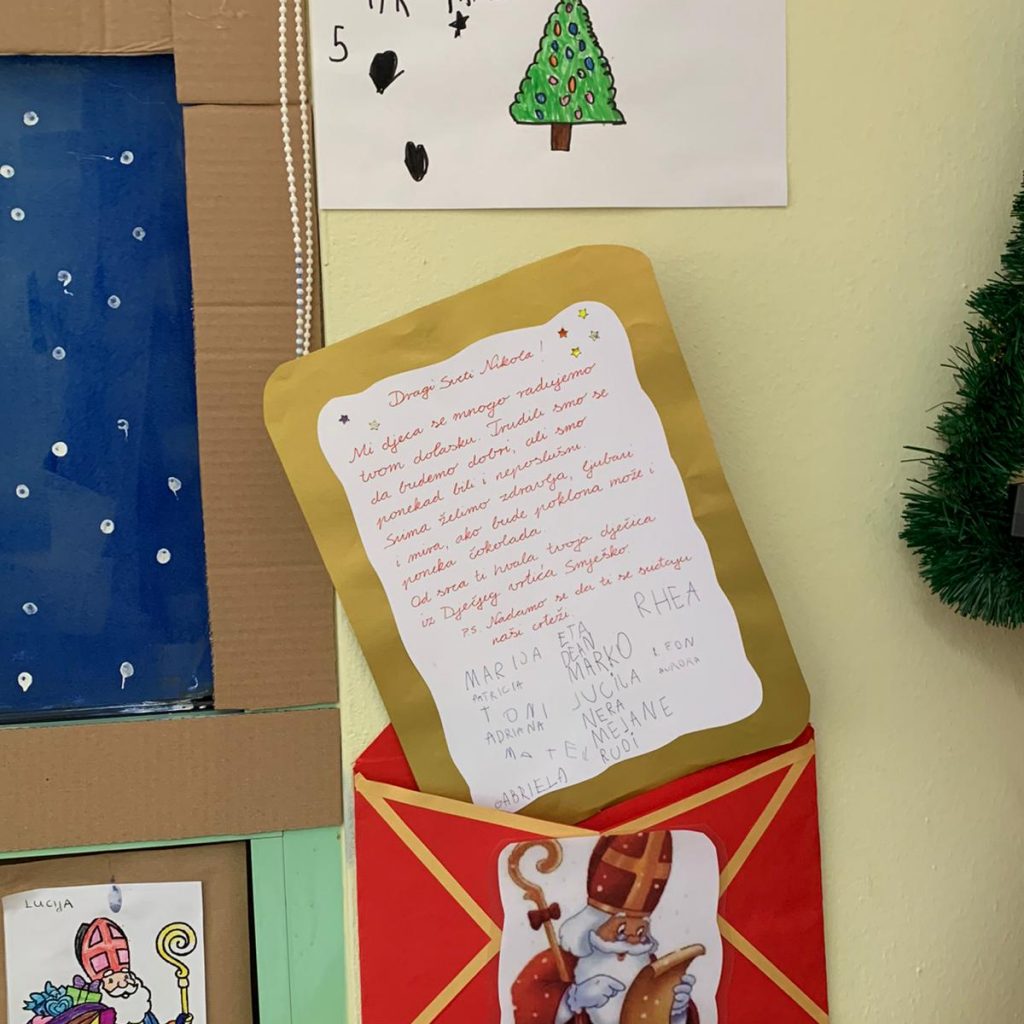 5
Dragi Sveti Nikola!
Mi djeca se mnogo radujemo
tvom dolasku. Trudili smo se
da budemo dobri, ali smo
ponekad bili i neposlušni.
Svima želimo zdravlja, ljubavi
i mira, ako bude poklona može i
poneka čokolada.
Od srca ti hvala tvoja dječica
iz Dječjeg vrtića Smješko.
P.S. Nadamo se da ti se sviđaju
naši crteži.
RHEA
ETA
DEAN
MARIJA
MARKO
LEON
PATRICIA
AURORA
TONI
JUCILA
ADRIANA
NERA
MATEJ
MEJANE
RUDI
GABRIELA
LUCIJA